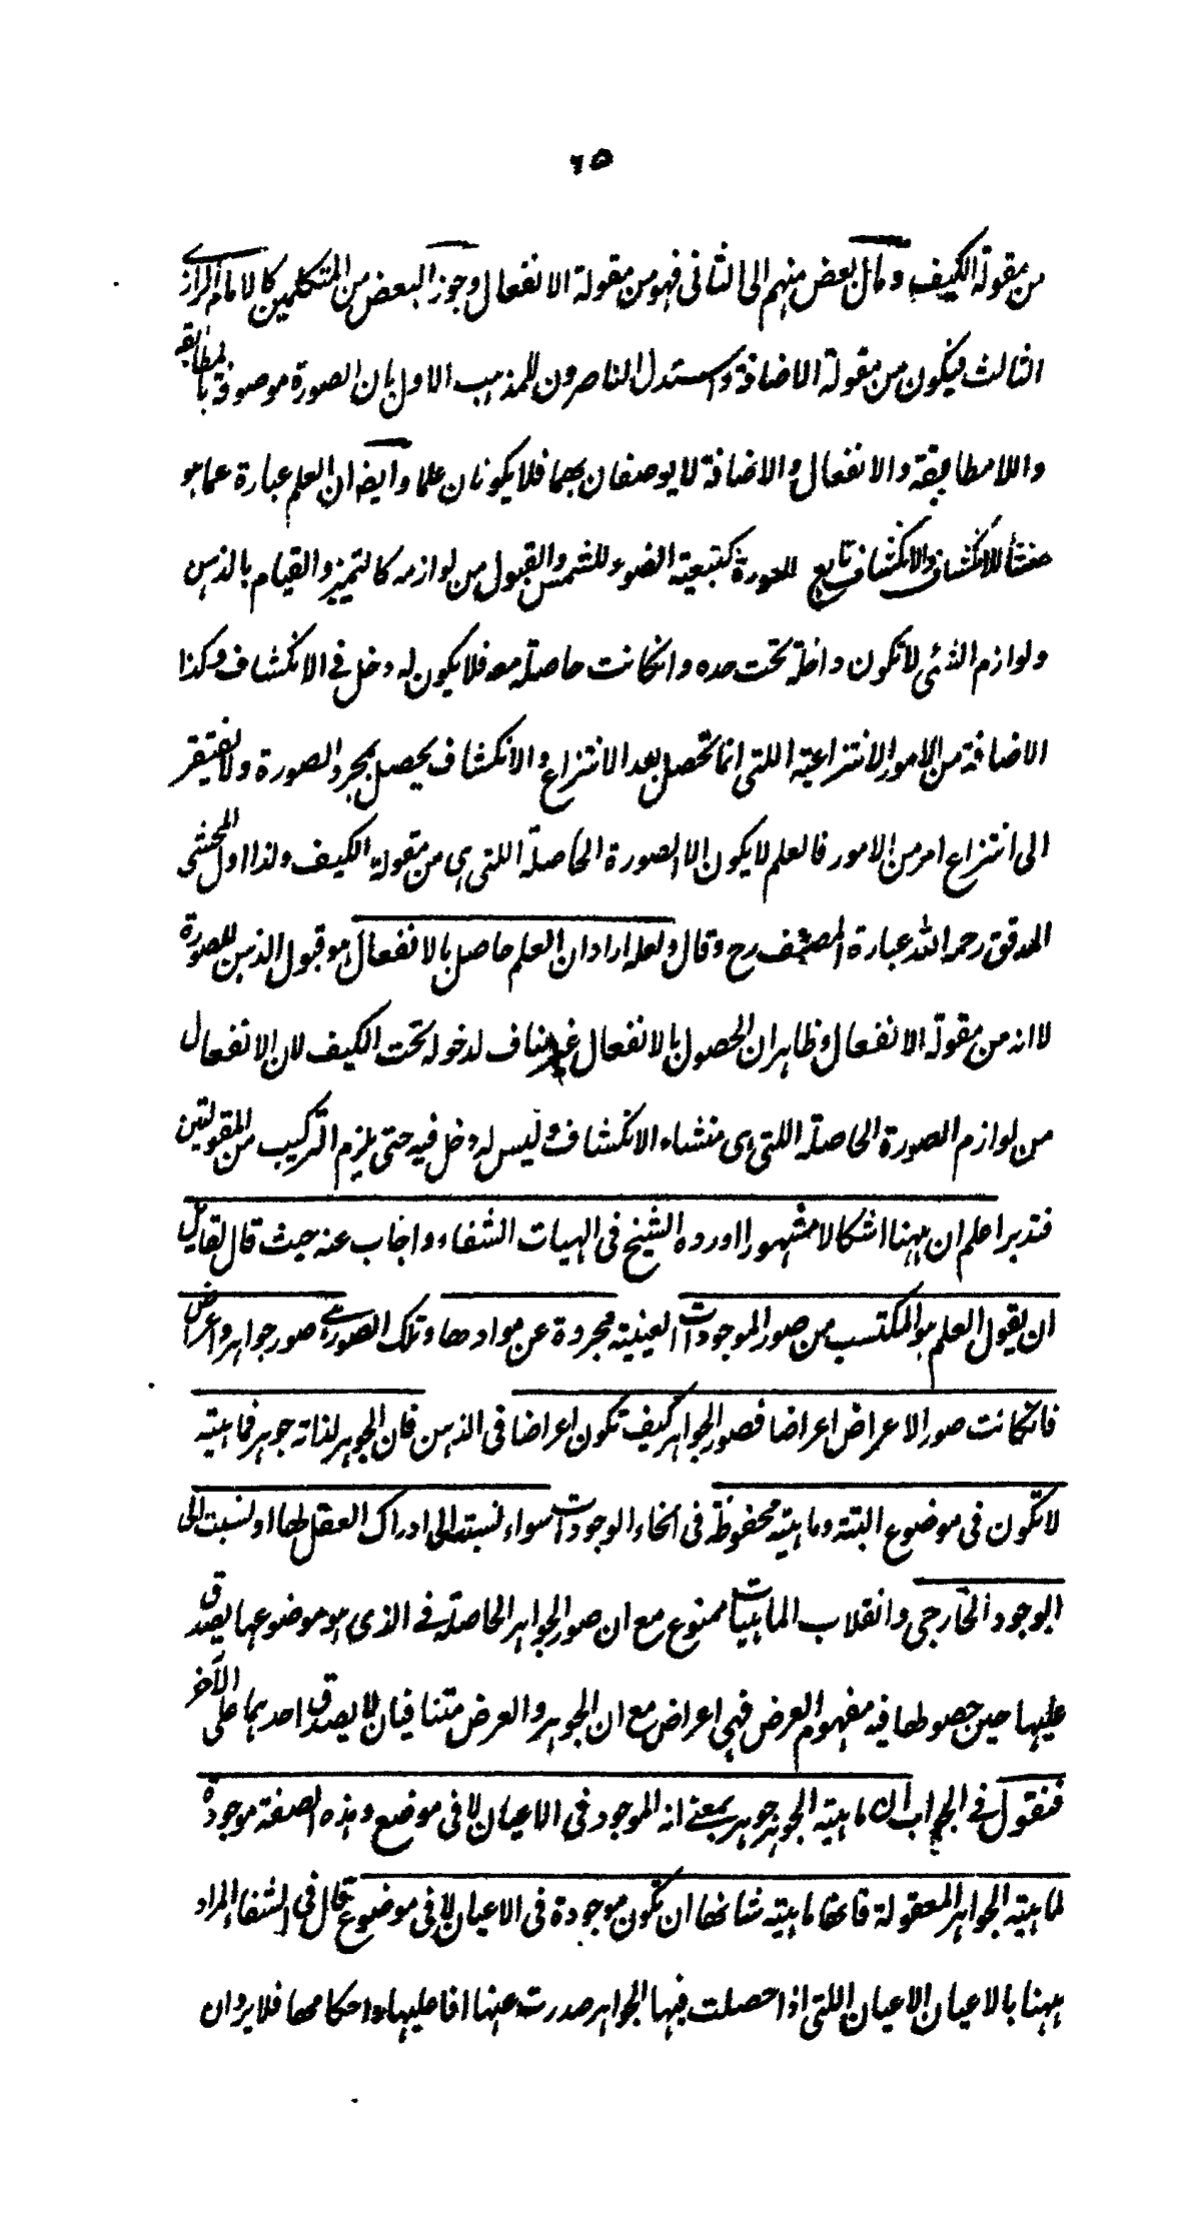 ٦٥
من مقولة الكيف ومال بعض منهم الى الثانى فهو من مقولة الانفعال وجوز البعض من المتكلمين كالامام الرازى
الثالث فيكون من مقولة الاضافة واستدل الناصرون للمذهب الاول بان الصورة موصوفة بالمطابقة
واللامطابقة والانفعال والاضافة لا يوصفان بهما فلا يكونان علما وايضا ان العلم عبارة عما هو
منشأ للانكشاف والانكشاف تابع للصورة كتبعية الضوء للشمس والقبول من لوازمه كالتميز والقيام بالذهن
ولوازم الشئ لا تكون داخلة تحت حده وانكانت حاصلة معه فلا يكون له دخل فى الانكشاف وكذا
الاضافة من الامور الانتزاعية اللتى انما تحصل بعد الانتزاع والانكشاف يحصل بمجرد الصورة ولا يفتقر
الى انتزاع امر من الامور فالعلم لا يكون الا الصورة الحاصلة اللتى هى من مقولة الكيف ولذا اول المحشى
المدقق رحمه الله عبارة المصنف رح وقال ولعله اراد ان العلم حاصل بالانفعال هو قبول الذهن للصورة
لا انه من مقولة الانفعال وظاهر ان الحصول بالانفعال غير مناف لدخوله تحت الكيف لان الانفعال
من لوازم الصورة الحاصلة اللتى هى منشاء الانكشاف وليس له دخل فيه حتى يلزم التركيب من المقولتين
فتدبر اعلم ان ههنا اشكالا مشهورا اورده الشيخ فى الهيات الشفاء واجاب عنه حيث قال لقايل
ان يقول العلم هو المكتسب من صور الموجودات العينية مجردة عن موادها وتلك الصور هى صور جواهر واعراض
فانكانت صور الاعراض اعراضا فصور الجواهر كيف تكون اعراضا فى الذهن فان الجوهر لذاته جوهر فماهيته
لا تكون فى موضوع البتة وماهيته محفوظة فى انحاء الوجودات سواء نسبته الى ادراك العقل لها او نسبت الى
الوجود الخارجى وانقلاب الماهيات ممنوع مع ان صور الجواهر الحاصلة فى الذى هو موضوعها يصدق
عليها حين حصولها فيه مفهوم العرض فهى اعراض مع ان الجوهر والعرض متنافيان لا يصدق احدهما على الآخر
فنقول فى الجواب ان ماهية الجوهر جوهر بمعنى انه الموجود فى الاعيان لا فى موضع وهذه الصفة موجودة
لماهية الجواهر المعقولة فانها ماهية شانها ان تكون موجودة فى الاعيان لا فى موضوع قال فى الشفا المراد
ههنا بالاعيان الاعيان اللتى اذا حصلت فيها الجواهر صدرت عنها افاعليها واحكامها فلا يرد ان